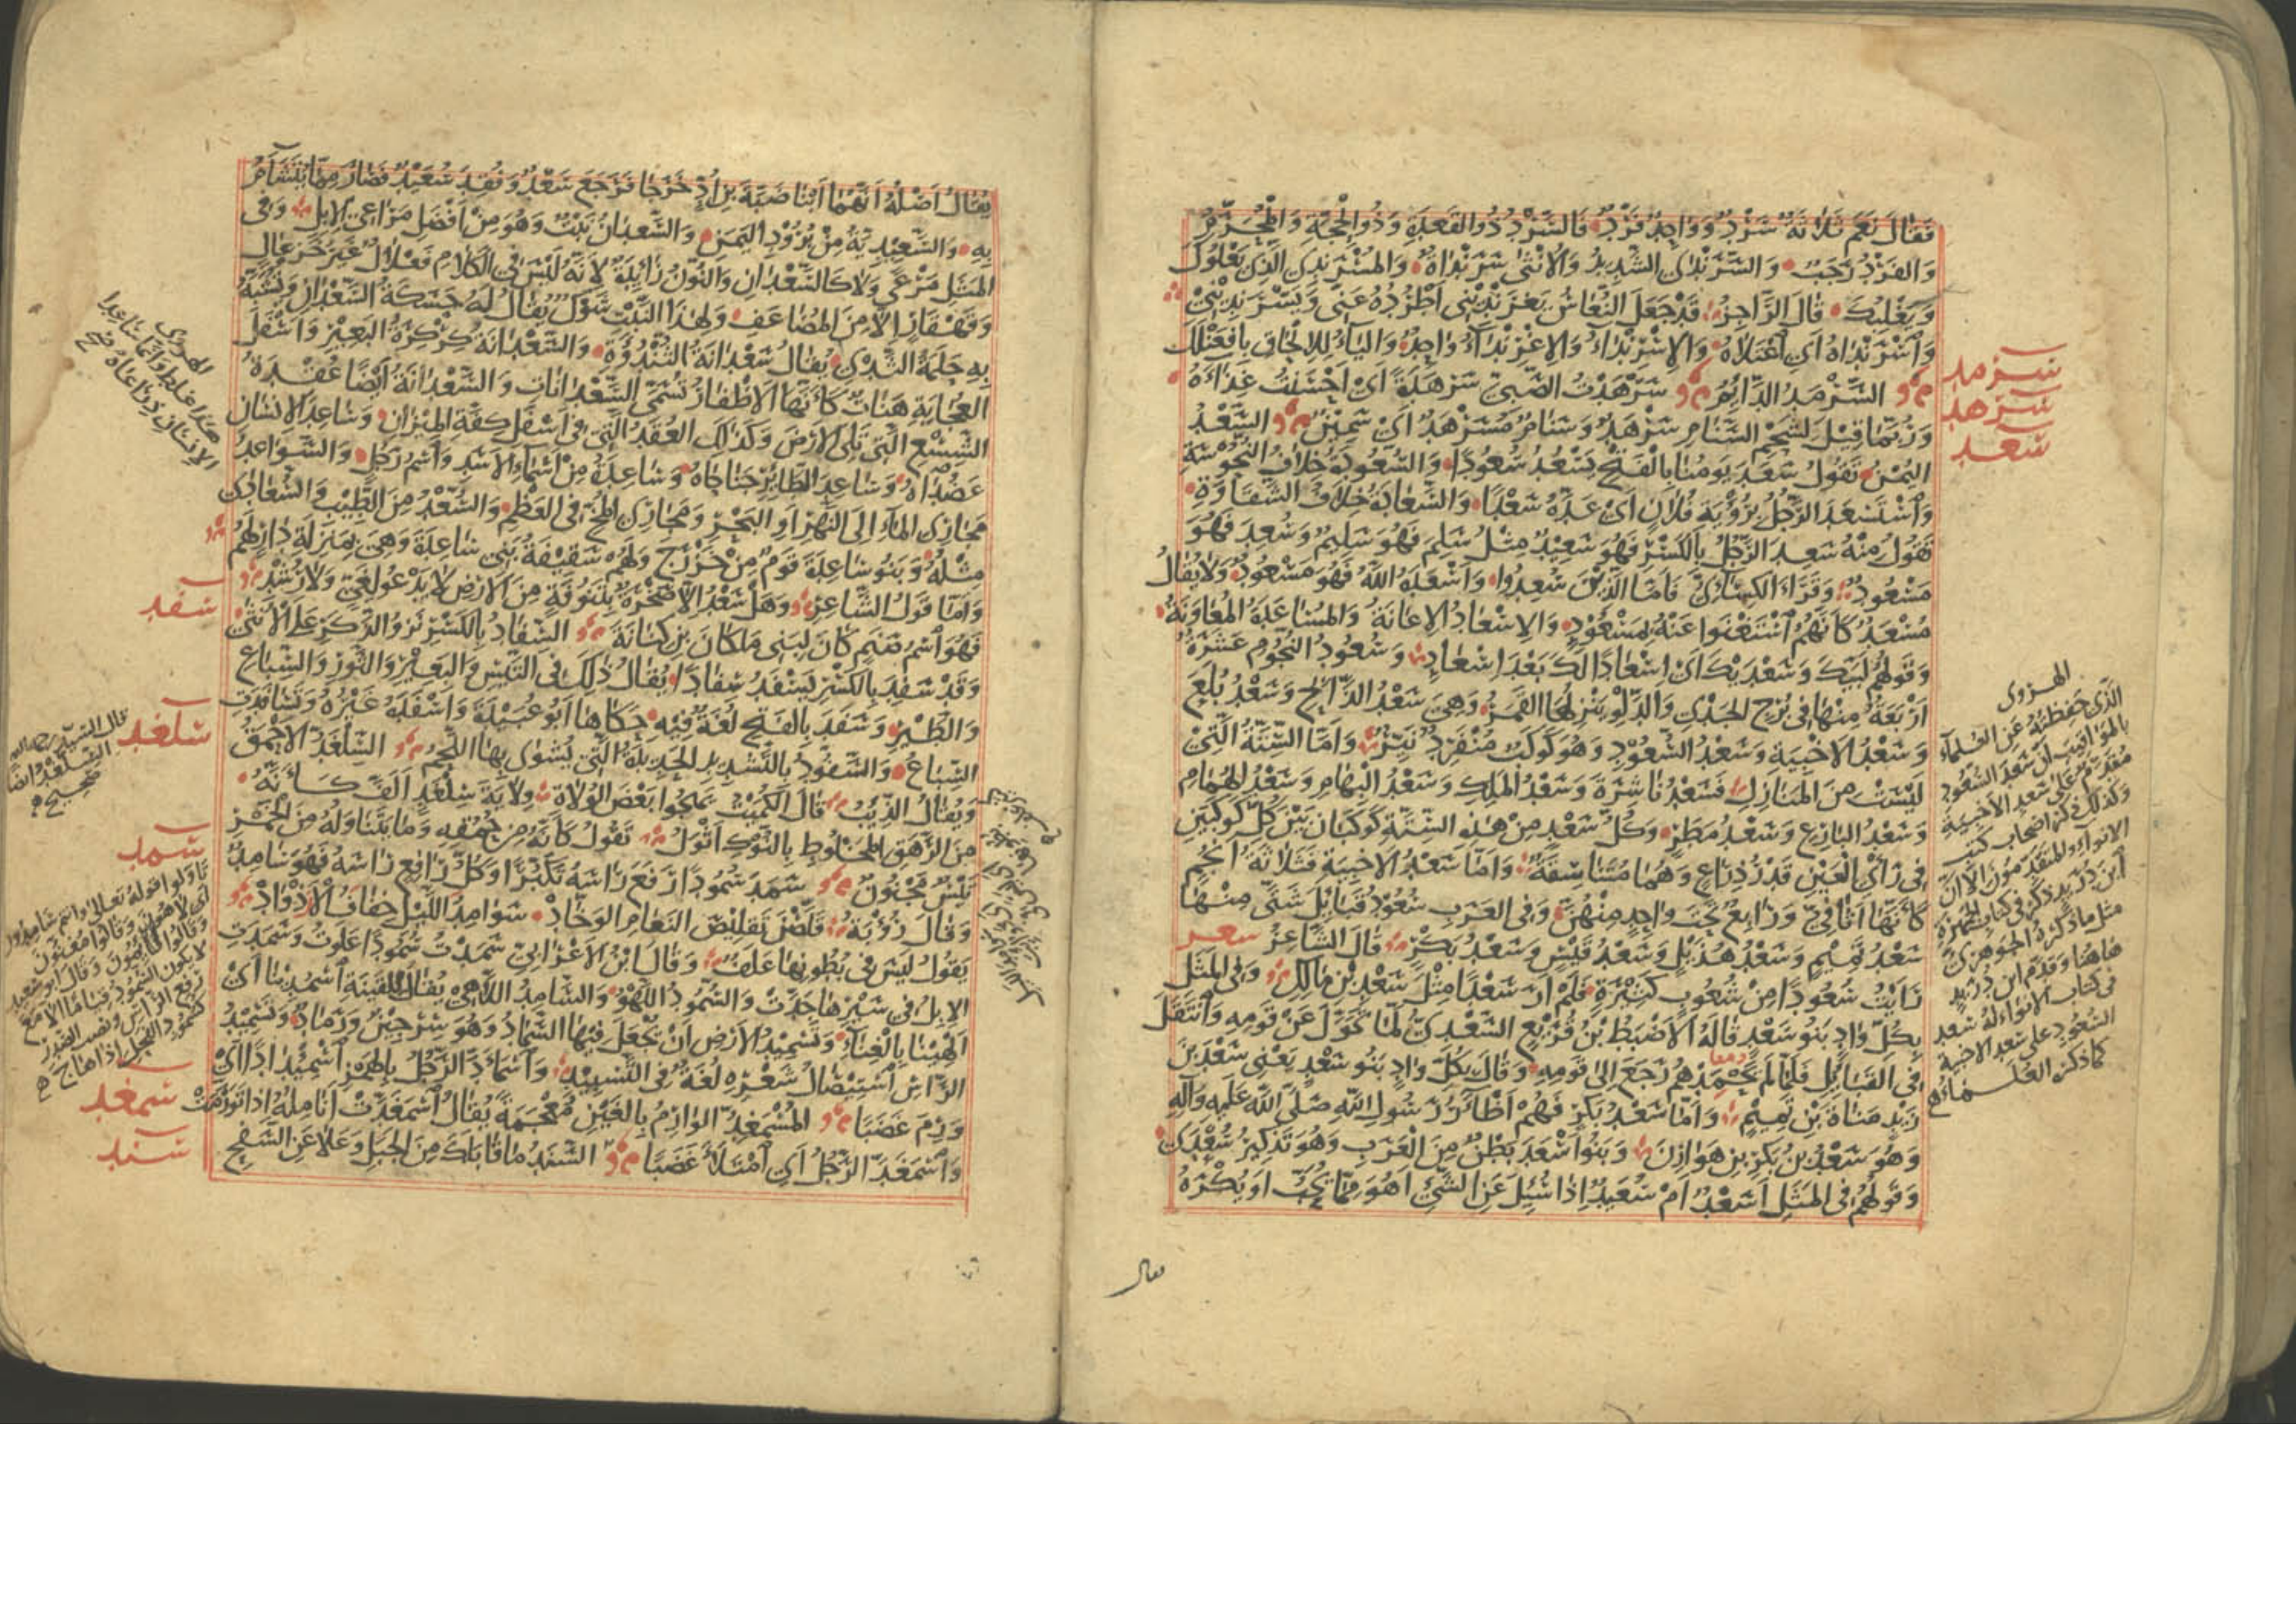 فَقَالَ نَعَمْ ثَلَاثَةٌ سَرْدٌ وَوَاحِدٌ فَرْدٌ فَالسَّرْدُ ذُو القَعْدَةِ وَذُو الْحِجَّةِ وَالْمُحَرَّمُ
وَالفَرْدُ رَجَبٌ وَالسَّرَنْدَى الشَّدِيدُ وَالْأُنْثَى سَرَنْدَاةٌ وَالمُسْرَنْدِي الَّذِي يَعْلُوكَ
وَيَغْلِبُكَ قَالَ الرَّاجِزُ قَدْ جَعَلَ النُّعَاسُ يَغْرَنْدِينِي أَطْرُدُهُ عَنِّي وَيَسْرَنْدِينِي
وَاسْرَنْدَاهُ أَيْ اعْتَلَاهُ وَالِاسْرِنْدَاءُ وَالِاغْرِنْدَاءُ وَاحِدٌ وَالْيَاءُ لِلْإِلْحَاقِ بِافْعَنْلَلَ
سرمد
السَّرْمَدُ الدَّائِمُ سَرْهَدْتُ الصَّبِيَّ سَرْهَدَةً أَيْ أَحْسَنْتُ غِذَاءَهُ
سرهد
وَرُبَّمَا قِيلَ لِشَحْمِ السَّنَامِ سَرْهَدٌ وَسَنَامٌ مُسَرْهَدٌ أَيْ سَمِينٌ السَّعْدُ
سعد
اليُمْنُ تَقُولُ سَعَدَ يَوْمُنَا بِالْفَتْحِ يَسْعَدُ سُعُودًا وَالسُّعُودَةُ خِلَافُ النُّحُوسَةِ
وَاسْتَسْعَدَ الرَّجُلُ بِرُؤْيَةِ فُلَانٍ أَيْ عَدَّهُ سَعْدًا وَالسَّعَادَةُ خِلَافُ الشَّقَاوَةِ
تَقُولُ مِنْهُ سَعِدَ الرَّجُلُ بِالْكَسْرِ فَهُوَ سَعِيدٌ مِثْلُ سَلِمَ فَهُوَ سَلِيمٌ وَسُعِدَ فَهُوَ
مَسْعُودٌ وَقَرَأَ الْكِسَائِيُّ فَأَمَّا الَّذِينَ سُعِدُوا وَأَسْعَدَهُ اللَّهُ فَهُوَ مَسْعُودٌ وَلَا يُقَالُ
مُسْعَدٌ كَأَنَّهُمُ اسْتَغْنَوا عَنْهُ بِمَسْعُودٍ وَالْإِسْعَادُ الْإِعَانَةُ وَالْمُسَاعَدَةُ الْمُعَاوَنَةُ
وَقَوْلُهُمْ لَبَّيْكَ وَسَعْدَيْكَ أَيْ إِسْعَادًا لَكَ بَعْدَ إِسْعَادٍ وَسُعُودُ النُّجُومِ عَشَرَةٌ
أَرْبَعَةٌ مِنْهَا فِي بُرْجِ الْجَدْيِ وَالدَّلْوِ يَنْزِلُهَا الْقَمَرُ وَهِيَ سَعْدُ الذَّابِحِ وَسَعْدُ بُلَعَ
وَسَعْدُ الْأَخْبِيَةِ وَسَعْدُ السُّعُودِ وَهُوَ كَوْكَبٌ مُنْفَرِدٌ نَيِّرٌ وَأَمَّا السِّتَّةُ الَّتِي
لَيْسَتْ مِنَ الْمَنَازِلِ فَسَعْدُ نَاشِرَةَ وَسَعْدُ الْمَلِكِ وَسَعْدُ الْبِهَامِ وَسَعْدُ الْهُمَامِ
وَسَعْدُ الْبَارِعِ وَسَعْدُ مَطَرٍ وَكُلُّ سَعْدٍ مِنْ هَذِهِ السِّتَّةِ كَوْكَبَانِ بَيْنَ كُلِّ كَوْكَبَيْنِ
فِي رَأْيِ الْعَيْنِ قَدْرُ ذِرَاعٍ وَهُمَا مُتَنَاسِقَةٌ وَأَمَّا سَعْدُ الْأَخْبِيَةِ فَثَلَاثَةُ أَنْجُمٍ
كَأَنَّهَا أَثَافِيُّ وَرَابِعٌ تَحْتَ وَاحِدٍ مِنْهُنَّ وَفِي الْعَرَبِ سُعُودُ قَبَائِلَ شَتَّى مِنْهَا
سَعْدُ تَمِيمٍ وَسَعْدُ هُذَيْلٍ وَسَعْدُ قَيْسٍ وَسَعْدُ بَكْرٍ قَالَ الشَّاعِرُ شعر
رَأَيْتُ سُعُودًا مِنْ شُعُوبٍ كَثِيرَةٍ فَلَمْ أَرَ سَعْدًا مِثْلَ سَعْدِ بْنِ مَالِكِ وَفِي الْمَثَلِ
بِكُلِّ وَادٍ بَنُو سَعْدٍ قَالَهُ الْأَضْبَطُ بْنُ قُرَيْعٍ السَّعْدِيُّ لَمَّا تَحَوَّلَ عَنْ قَوْمِهِ وَانْتَقَلَ
فِي الْقَبَائِلِ فَلَمَّا لَمْ يَحْمَدْهُمْ رَجَعَ إِلَى قَوْمِهِ وَقَالَ بِكُلِّ وَادٍ بَنُو سَعْدٍ يَعْنِي سَعْدَ بْنَ
زَيْدِ مَنَاةَ بْنِ تَمِيمٍ وَأَمَّا سَعْدُ بَكْرٍ فَهُمْ أَظْآرُ رَسُولِ اللَّهِ صَلَّى اللَّهُ عَلَيْهِ وَآلِهِ
وَهُوَ سَعْدُ بْنُ بَكْرِ بْنِ هَوَازِنَ وَبَنُو أَسْعَدَ بَطْنٌ مِنَ الْعَرَبِ وَهُوَ تَذْكِيرُ سُعْدَى
وَقَوْلُهُمْ فِي الْمَثَلِ أَسَعْدٌ أَمْ سُعَيْدٌ إِذَا سُئِلَ عَنِ الشَّيْءِ أَهُوَ مِمَّا يُحَبُّ أَوْ يُكْرَهُ
يقال
الهروي
الَّذِي حَفِظْتُهُ عَنِ الْعُلَمَاءِ
بِالْمَوَاقِيتِ أَنَّ سَعْدَ السُّعُودِ
مُقَدَّمٌ عَلَى سَعْدِ الْأَخْبِيَةِ
وَكَذَلِكَ ذَكَرَ أَصْحَابُ كُتُبِ
الْأَنْوَاءِ وَالْمُتَقَدِّمُونَ إِلَّا أَنَّ
ابْنَ دُرَيْدٍ ذَكَرَ فِي كِتَابِ الْجَمْهَرَةِ
مِثْلَ مَا ذَكَرَهُ الْجَوْهَرِيُّ
هَاهُنَا وَقَدَّمَ ابْنُ دُرَيْدٍ
فِي كِتَابِ الْأَنْوَاءِ لَهُ سَعْدَ
السُّعُودِ عَلَى سَعْدِ الْأَخْبِيَةِ
كَمَا ذَكَرَهُ الْعُلَمَاءُ
يُقَالُ أَصْلُهُ أَنَّهُمَا ابْنَا ضَبَّةَ بْنِ أُدٍّ خَرَجَا فَرَجَعَ سَعْدٌ وَفُقِدَ سُعَيْدٌ فَصَارَ مِمَّا يُتَشَاءَمُ
بِهِ وَالسَّعِيدِيَّةُ مِنْ بُرُودِ الْيَمَنِ وَالسَّعْدَانُ نَبْتٌ وَهُوَ مِنْ أَفْضَلِ مَرَاعِي الْإِبِلِ وَفِي
الْمَثَلِ مَرْعًى وَلَا كَالسَّعْدَانِ وَالنُّونُ زَائِدَةٌ لِأَنَّهُ لَيْسَ فِي الْكَلَامِ فَعْلَالٌ غَيْرُ خَزْعَالٍ
وَقَهْقَارٍ إِلَّا مِنَ الْمُضَاعَفِ وَلِهَذَا النَّبْتِ شَوْكٌ يُقَالُ لَهُ حَسَكَةُ السَّعْدَانِ وَيُشَبَّهُ
بِهِ حَلَمَةُ الثَّدْيِ يُقَالُ سَعْدَانَةُ الثُّنْدُوَةِ وَالسَّعْدَانَةُ كِرْكِرَةُ الْبَعِيرِ وَأَسْفَلَ
الْعُجَايَةِ هَنَاتٌ كَأَنَّهَا الْأَظْفَارُ تُسَمَّى السَّعْدَانَاتِ وَالسَّعْدَانَةُ أَيْضًا عُقْدَةُ
الشِّسْعِ الَّتِي تَلِي الْأَرْضَ وَكَذَلِكَ الْعُقَدُ الَّتِي فِي أَسْفَلِ كِفَّةِ الْمِيزَانِ وَسَاعِدَا الْإِنْسَانِ
عَضُدَاهُ وَسَاعِدَا الطَّائِرِ جَنَاحَاهُ وَسَاعِدَةُ مِنْ أَسْمَاءِ الْأَسَدِ وَاسْمُ رَجُلٍ وَالسَّوَاعِدُ
مَجَارِي الْمَاءِ إِلَى النَّهْرِ أَوِ الْبَحْرِ وَمَجَارِي الْمُخِّ فِي الْعَظْمِ وَالسُّعْدُ مِنَ الطِّيبِ وَالسُّعَادَى
مِثْلُهُ وَبَنُو سَاعِدَةَ قَوْمٌ مِنْ خَزْرَجٍ وَلَهُمْ سَقِيفَةُ بَنِي سَاعِدَةَ وَهِيَ بِمَنْزِلَةِ دَارٍ لَهُمْ
وَأَمَّا قَوْلُ الشَّاعِرِ وَهَلْ سَعْدُ إِلَّا صَخْرَةٌ بِتَنُوفَةٍ مِنَ الْأَرْضِ لَا يَدْعُو لِغَيٍّ وَلَا رُشْدِ
فَهُوَ اسْمُ صَنَمٍ كَانَ لِبَنِي مَلْكَانَ بْنِ كِنَانَةَ السِّفَادُ بِالْكَسْرِ نَزْوُ الذَّكَرِ عَلَى الْأُنْثَى
سفد
وَقَدْ سَفِدَ بِالْكَسْرِ يَسْفَدُ سِفَادًا يُقَالُ ذَلِكَ فِي التَّيْسِ وَالْبَعِيرِ وَالثَّوْرِ وَالسِّبَاعِ
وَالطَّيْرِ وَسَفَدَ بِالْفَتْحِ لُغَةٌ فِيهِ حَكَاهَا أَبُو عُبَيْدَةَ وَأَسْفَدَهُ غَيْرُهُ وَتَسَافَدَتِ
السِّبَاعُ وَالسَّفُّودُ بِالتَّشْدِيدِ الْحَدِيدَةُ الَّتِي يُشْوَى بِهَا اللَّحْمُ السِّلَّغْدُ الْأَحْمَقُ
سلغد
وَيُقَالُ الذِّئْبُ قَالَ الْكُمَيْتُ يَهْجُو بَعْضَ الْوُلَاةِ وِلَايَةُ سِلَّغْدٍ أَلَفَّ كَأَنَّهُ
مِنَ الرَّهَقِ الْمَخْلُوطِ بِالنُّوكِ أَثْوَلُ تَقُولُ كَأَنَّهُ مِنْ حُمْقِهِ وَمَا يَتَنَاوَلُهُ مِنَ الْخَمْرِ
تَيْسٌ مَجْنُونٌ سَمَدَ سُمُودًا رَفَعَ رَأْسَهُ تَكَبُّرًا وَكُلُّ رَافِعٍ رَأْسَهُ فَهُوَ سَامِدٌ
سمد
وَقَالَ رُؤْبَةُ قَلَّصْنَ تَقْلِيصَ النَّعَامِ الْوَخَّادْ سَوَامِدُ اللَّيْلِ خِفَافُ الْأَزْوَادْ
يَقُولُ لَيْسَ فِي بُطُونِهَا عَلَفٌ وَقَالَ ابْنُ الْأَعْرَابِيِّ سَمَدْتُ سُمُودًا عَلَوْتُ وَسَمَدَتِ
الْإِبِلُ فِي سَيْرِهَا جَدَّتْ وَالسُّمُودُ اللَّهْوُ وَالسَّامِدُ اللَّاهِي يُقَالُ لِلْقَيْنَةِ أَسْمِدِينَا أَيْ
أَلْهِينَا بِالْغِنَاءِ وَتَسْمِيدُ الْأَرْضِ أَنْ تَجْعَلَ فِيهَا السَّمَادَ وَهُوَ سِرْجِينٌ وَرَمَادٌ وَتَسْمِيدُ
الرَّأْسِ اسْتِئْصَالُ شَعْرِهِ لُغَةٌ فِي التَّسْبِيدِ وَاسْمَأَدَّ الرَّجُلُ بِالْهَمْزِ اسْمِئْدَادًا أَيْ
وَرِمَ غَضَبًا الْمُسْمَغِدُّ الْوَارِمُ بِالْغَيْنِ مُعْجَمَةً يُقَالُ اسْمَغَدَّتْ أَنَامِلُهُ إِذَا تَوَرَّمَتْ
سمغد
وَاسْمَغَدَّ الرَّجُلُ أَيِ امْتَلَأَ غَضَبًا السَّنَدُ مَا قَابَلَكَ مِنَ الْجَبَلِ وَعَلَا عَنِ السَّفْحِ
سند
الهروي
هذا غلط وانما ساعدا
الانسان ذراعاه صح